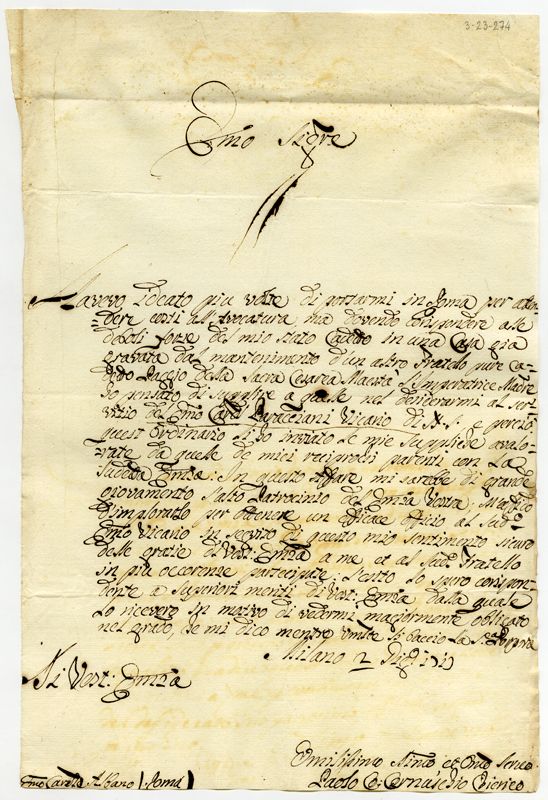 3-23-274
Em̃o Sig̃re
Havevo Ideato piu volte di portarmi in Roma per atten-
dere costi all'Avocatura, ma dovendo corispondere a le
deboli forze del mio stato Cadetto in una Casa già
gravata dal mantenimento d'un altro Fratelo pure Ca-
detto Paggio della Sacra Cesarea Maesta l'Imperatrice Madre
ho pensato di suplire a quelle nel desiderarmi al ser-
vitio del Em̃o Card Paracciani Vicario di N. S. e perciò
quest'Ordinario li ho inviato le mie suppliche avalo-
rate da quelle de miei reciprochi parenti con La
sudetta Em̃za: In questo affare mi sarebe di grande
giovamento l'alto Patrocinio del Em̃za Vostra;
d'implorarlo per ottenere un efficace officio al Sud.o
Em̃o Vicario in servitio di questo mio sentimento sicuro
delle gratie di Vost: Em̃za a me et al Sud. Fratello
in più occorenze partecipate; Scorto lo spero corispon-
dente a superiori meriti di Vost: Em̃za dalla quale
Lo riceverò in motivo di vedermi magiormente obligato
nel grado, che mi dico mentre umilte li baccio la S. Porpora
Milano 2
Di Vost: Em̃za
Umilissimo et Servo
Paolo C. Cernuschio Chierico
Em̃o Card Albano (Roma)